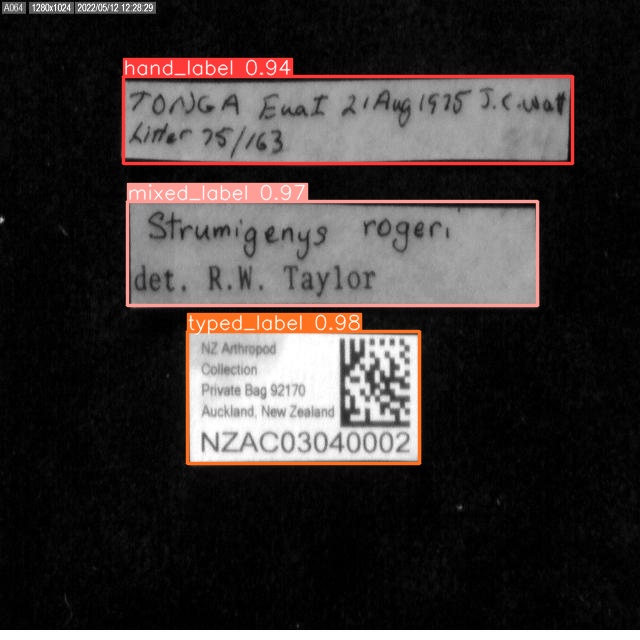 A064 1280x1024 2022/05/12 12:28:29
hand_label 0.94
TONGA Eua I 21 Aug 1975 J.C. Watt
Litter 75/163
mixed_label 0.97
Strumigenys rogeri
det. R.W. Taylor
typed_label 0.98
NZ Arthropod
Collection
Private Bag 92170
Auckland, New Zealand
NZAC03040002